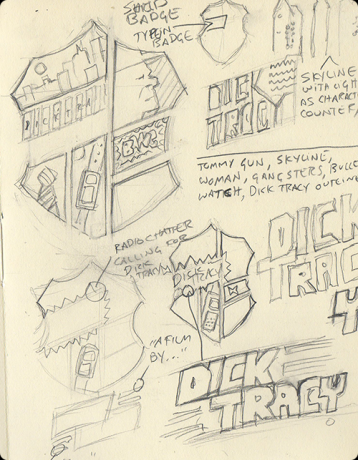 SHIELD
BADGE
TYPE IN
BADGE
DICK TRA
BANG
DICK
TRACY
SKYLINE
WITH LIGH
AS CHARACT
COUNTER
TOMMY GUN, SKYLINE,
WOMAN, GANGSTERS, BULLE
WATCH, DICK TRACY OUTLINE
RADIO CHATTER
CALLING FOR
DICK
TRACY
DICK
TRACY
DICK
TRACY
"A FILM
BY..."
DICK
TRACY